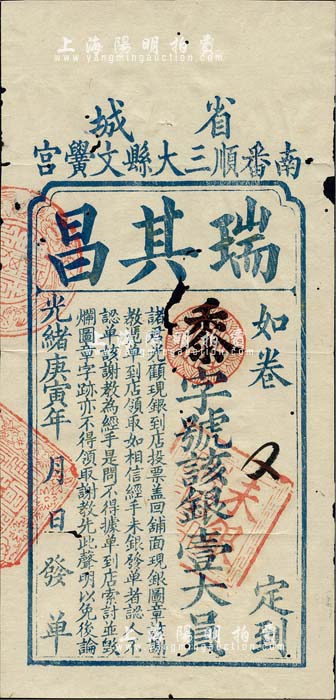 上海陽明拍賣
www.yangmingauction.com
省城
南番順三大縣文黌宮
瑞其昌
如卷
定到
黍字號該銀壹大員
諸君光顧現銀到店投票蓋回舖面現銀圖章
教憑單到店領取如相信經手未銀發單者認
認單該謝教為經手是問不得據單到店索計並毀
爛圖章字跡亦不得領取謝教先此聲明以免後論
光緒庚寅年 月 日發單